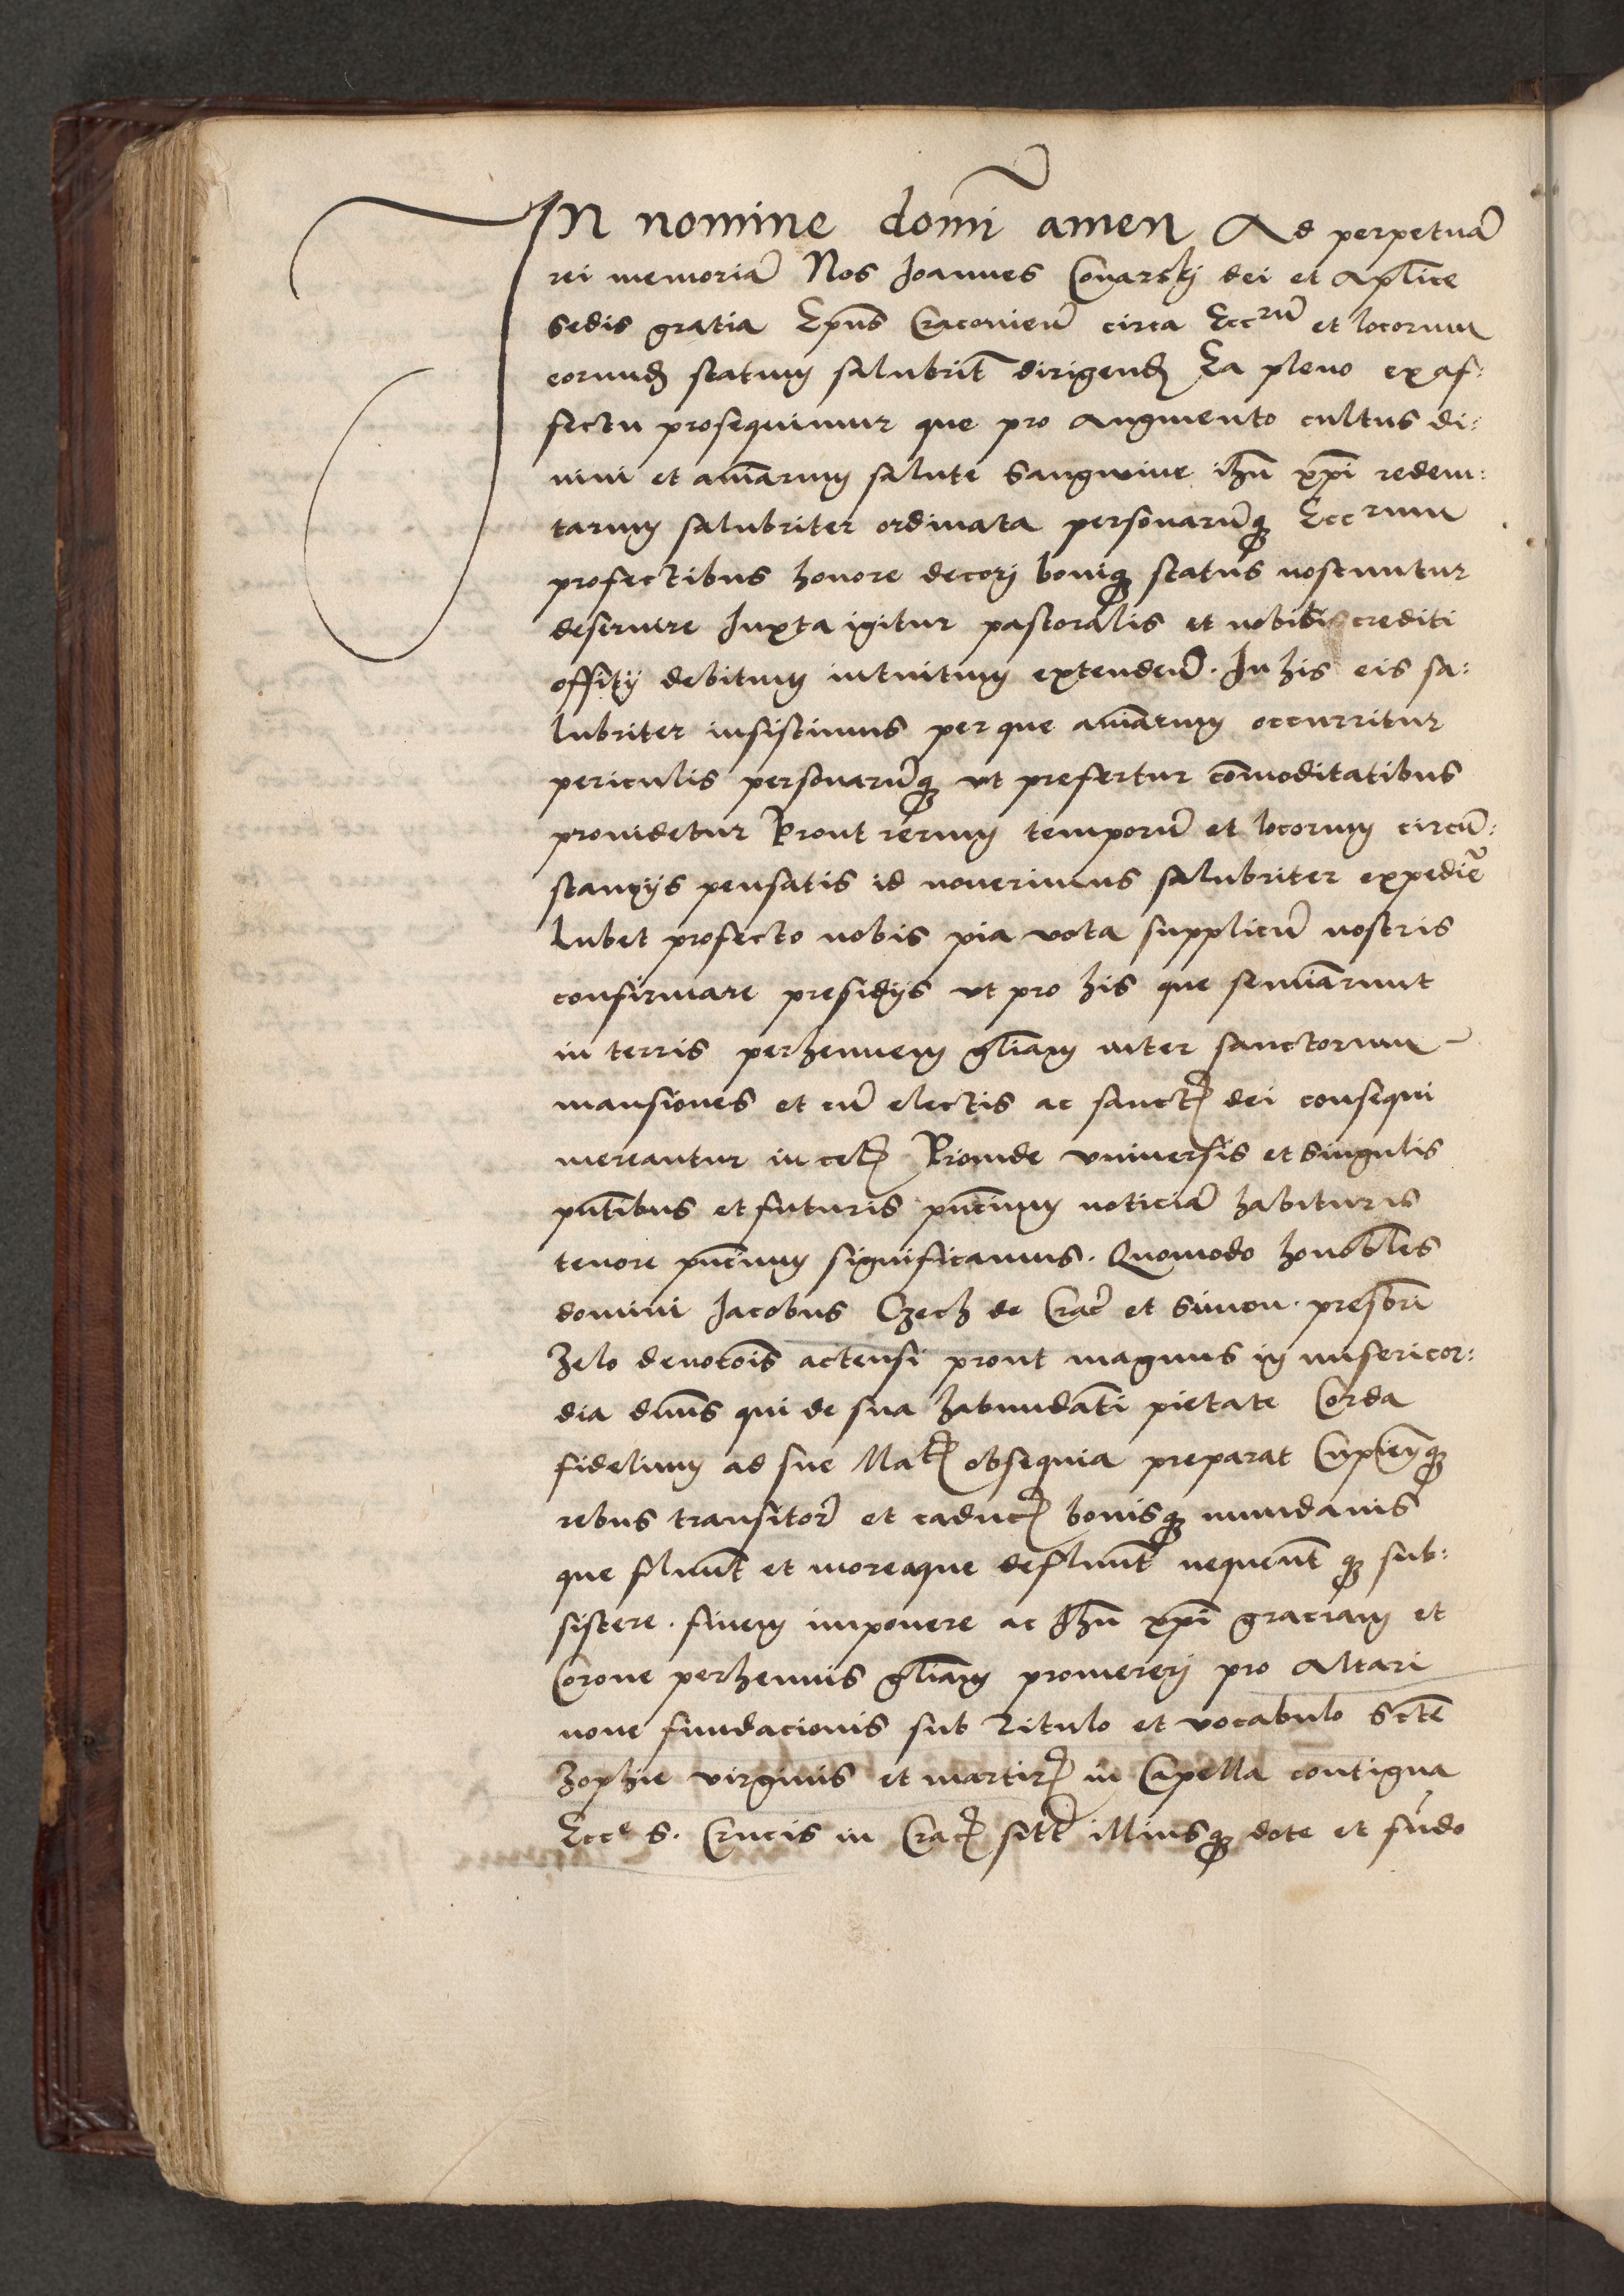 In nomine domī amen Ad perpetuā
rei memoriā Nos Joannes Conarskj dei et Aplice
sedis gratia Epūs Cracovieñ circa Eccrū et locorum
eorumdꝫ statum salubrīt dirigendꝫ Ea pleno ex af:
fectu prosequimur que pro augmento cultus di:
vini et aīarum salute sangwine ihū xpī redem:
tarum salubriter ordinata personarūqꝫ Eccrum
profectibus honore decorj boniqꝫ status noscuntur
deservire Juxta igitur pastoralis et nobis crediti
offitij debitum intuitum extendeñ. In his eis sa:
lubriter insistimus per que aīarum occurritur
periculis personarūqꝫ ut prefertur cōmoditatibus
providetur Prout rerum temporū et locorum circū:
stancijs pensatis id noverimus salubriter expedirē
Lubet profecto nobis pia vota supplicū nostris
confirmare presidijs ut pro his que semīarunt
in terris perhennem glīam inter sanctorum
mansiones et cū electis ac sanctꝭ dei consequi
mereantur in celꝭ Proinde universis et singulis
pn̄tibus et futuris pn̄cium noticiā habituris
tenore pn̄cium significamus. Quomodo honobīles
domini Jacobus Czech de Crač et Simon. presbrī
Zelo devocōis actensi prout magnus in misericor:
dia dn̄us qui de sua habundātī pietate Corda
fidelium ad sue Matꝭ obsequia preparat Cupieñqꝫ
rebus transitor̄ et caducꝭ bonisqꝫ mundanis
que fluūt et moreaque defluūt nequeūt qꝫ sub:
sistere. finem imponere ac Jhū xpī graciam et
Corone perhennis glīam promererj pro Altari
nove fundacionis sub Titulo et vocabulo Sctē
Zophie virginis et martirꝭ in Capella contigua
Ecce S. Crucis in Cracꝭ sitꝭ illiusqꝫ dote et fūdo